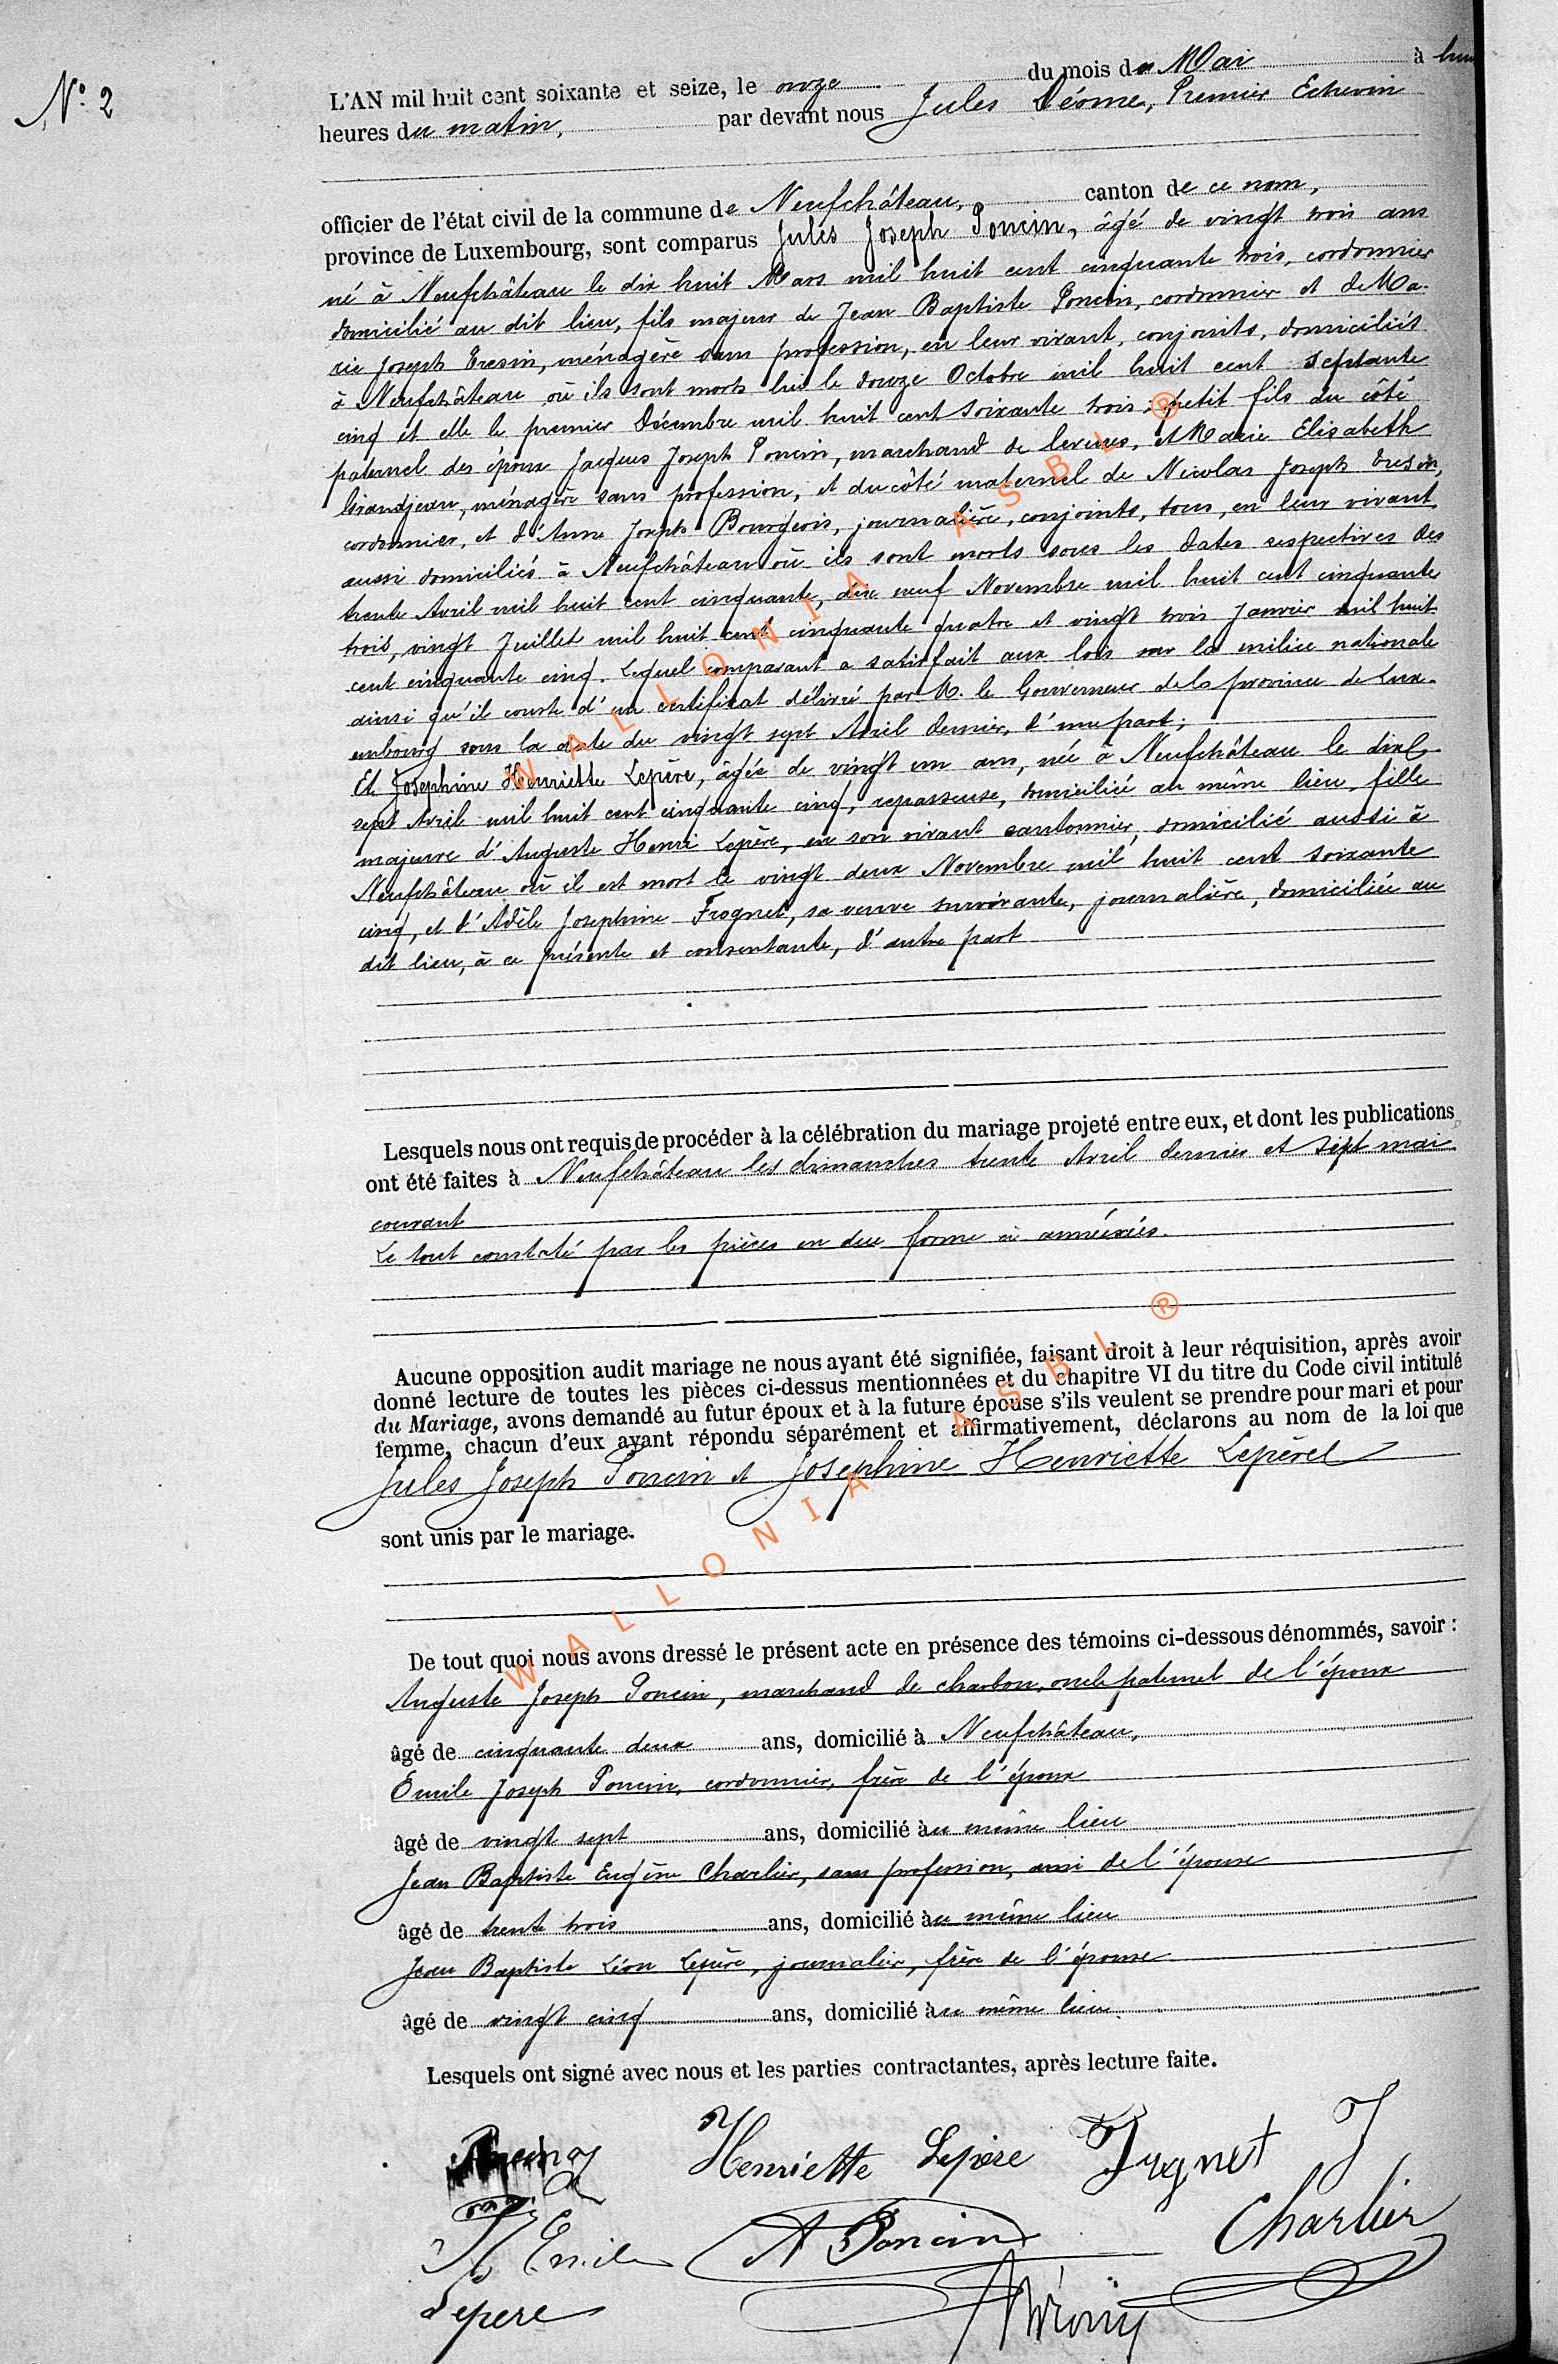 N° 2
L'AN mil huit cent soixante et seize, le onze du mois de Mai à
heures du matin, par devant nous Jules Déome, Premier Echevin
officier de l'état civil de la commune de Neufchâteau, canton de ce nom,
province de Luxembourg, sont comparus Jules Joseph Poncin, âgé de vingt trois ans
né à Neufchâteau le dix huit Mars mil huit cent cinquante trois, cordonnier
domicilié au dit lieu, fils majeur de Jean Baptiste Poncin, cordonnier et de Ma-
rie Joseph Dresin, ménagère sans profession, en leur vivant, conjoints, domiciliés
à Neufchâteau où ils sont morts lui le douze Octobre mil huit cent septante
cinq et elle le premier Décembre mil huit cent soixante trois; petit fils du côté
paternel des époux Jacques Joseph Poncin, marchand de levures, et Marie Elisabeth
Grandjean, ménagère sans profession, et du côté maternel de Nicolas Joseph Dresin,
cordonnier, et d'Anne Joseph Bourgeois, journalière, conjoints, tous, en leur vivant,
aussi domiciliés à Neufchâteau où ils sont morts sous les dates respectives des
trente Avril mil huit cent cinquante, dix neuf Novembre mil huit cent cinquante
trois, vingt Juillet mil huit cent cinquante quatre et vingt trois Janvier mil huit
cent cinquante cinq. Lequel comparant a satisfait aux lois sur la milice nationale
ainsi qu'il conste d'un certificat délivré par M. le Gouverneur de la province de Lux-
embourg sous la date du vingt sept Avril dernier, d'une part;
Et Josephine Henriette Lepère, âgée de vingt un ans, née à Neufchâteau le dix
sept Avril mil huit cent cinquante cinq, repasseuse, domiciliée au même lieu, fille
majeure d'Auguste Henri Lepère, en son vivant cantonnier, domicilié aussi à
Neufchâteau où il est mort le vingt deux Novembre mil huit cent soixante
cinq, et d'Adèle Josephine Frognet, sa veuve survivante, journalière, domiciliée au
dit lieu, à ce présente et consentante, d'autre part
Lesquels nous ont requis de procéder à la célébration du mariage projeté entre eux, et dont les publications
ont été faites à Neufchâteau les dimanches trente Avril dernier et sept mai
courant
Le tout constaté par les pièces en due forme ci annexées.
Aucune opposition audit mariage ne nous ayant été signifiée, faisant droit à leur réquisition, après avoir
donné lecture de toutes les pièces ci-dessus mentionnées et du chapitre VI du titre du Code civil intitulé
du Mariage, avons demandé au futur époux et à la future épouse s'ils veulent se prendre pour mari et pour
femme, chacun d'eux ayant répondu séparément et affirmativement, déclarons au nom de la loi que
Jules Joseph Poncin et Josephine Henriette Lepère
sont unis par le mariage.
De tout quoi nous avons dressé le présent acte en présence des témoins ci-dessous dénommés, savoir :
Auguste Joseph Poncin, marchand de charbon, oncle paternel de l'époux
âgé de cinquante deux ans, domicilié à Neufchâteau,
Emile Joseph Poncin, cordonnier, frère de l'époux
âgé de vingt sept ans, domicilié au même lieu
Jean Baptiste Eugène Charlier, sans profession, ami de l'épouse
âgé de trente trois ans, domicilié au même lieu
Jean Baptiste Léon Lepère, journalier, frère de l'épouse
âgé de vingt cinq ans, domicilié au même lieu
Lesquels ont signé avec nous et les parties contractantes, après lecture faite.
Henriette Lepère Frognet J
Emile A Poncin Charlier
Lepere
WALLONIA ASBL ®
WALLONIA ASBL ®